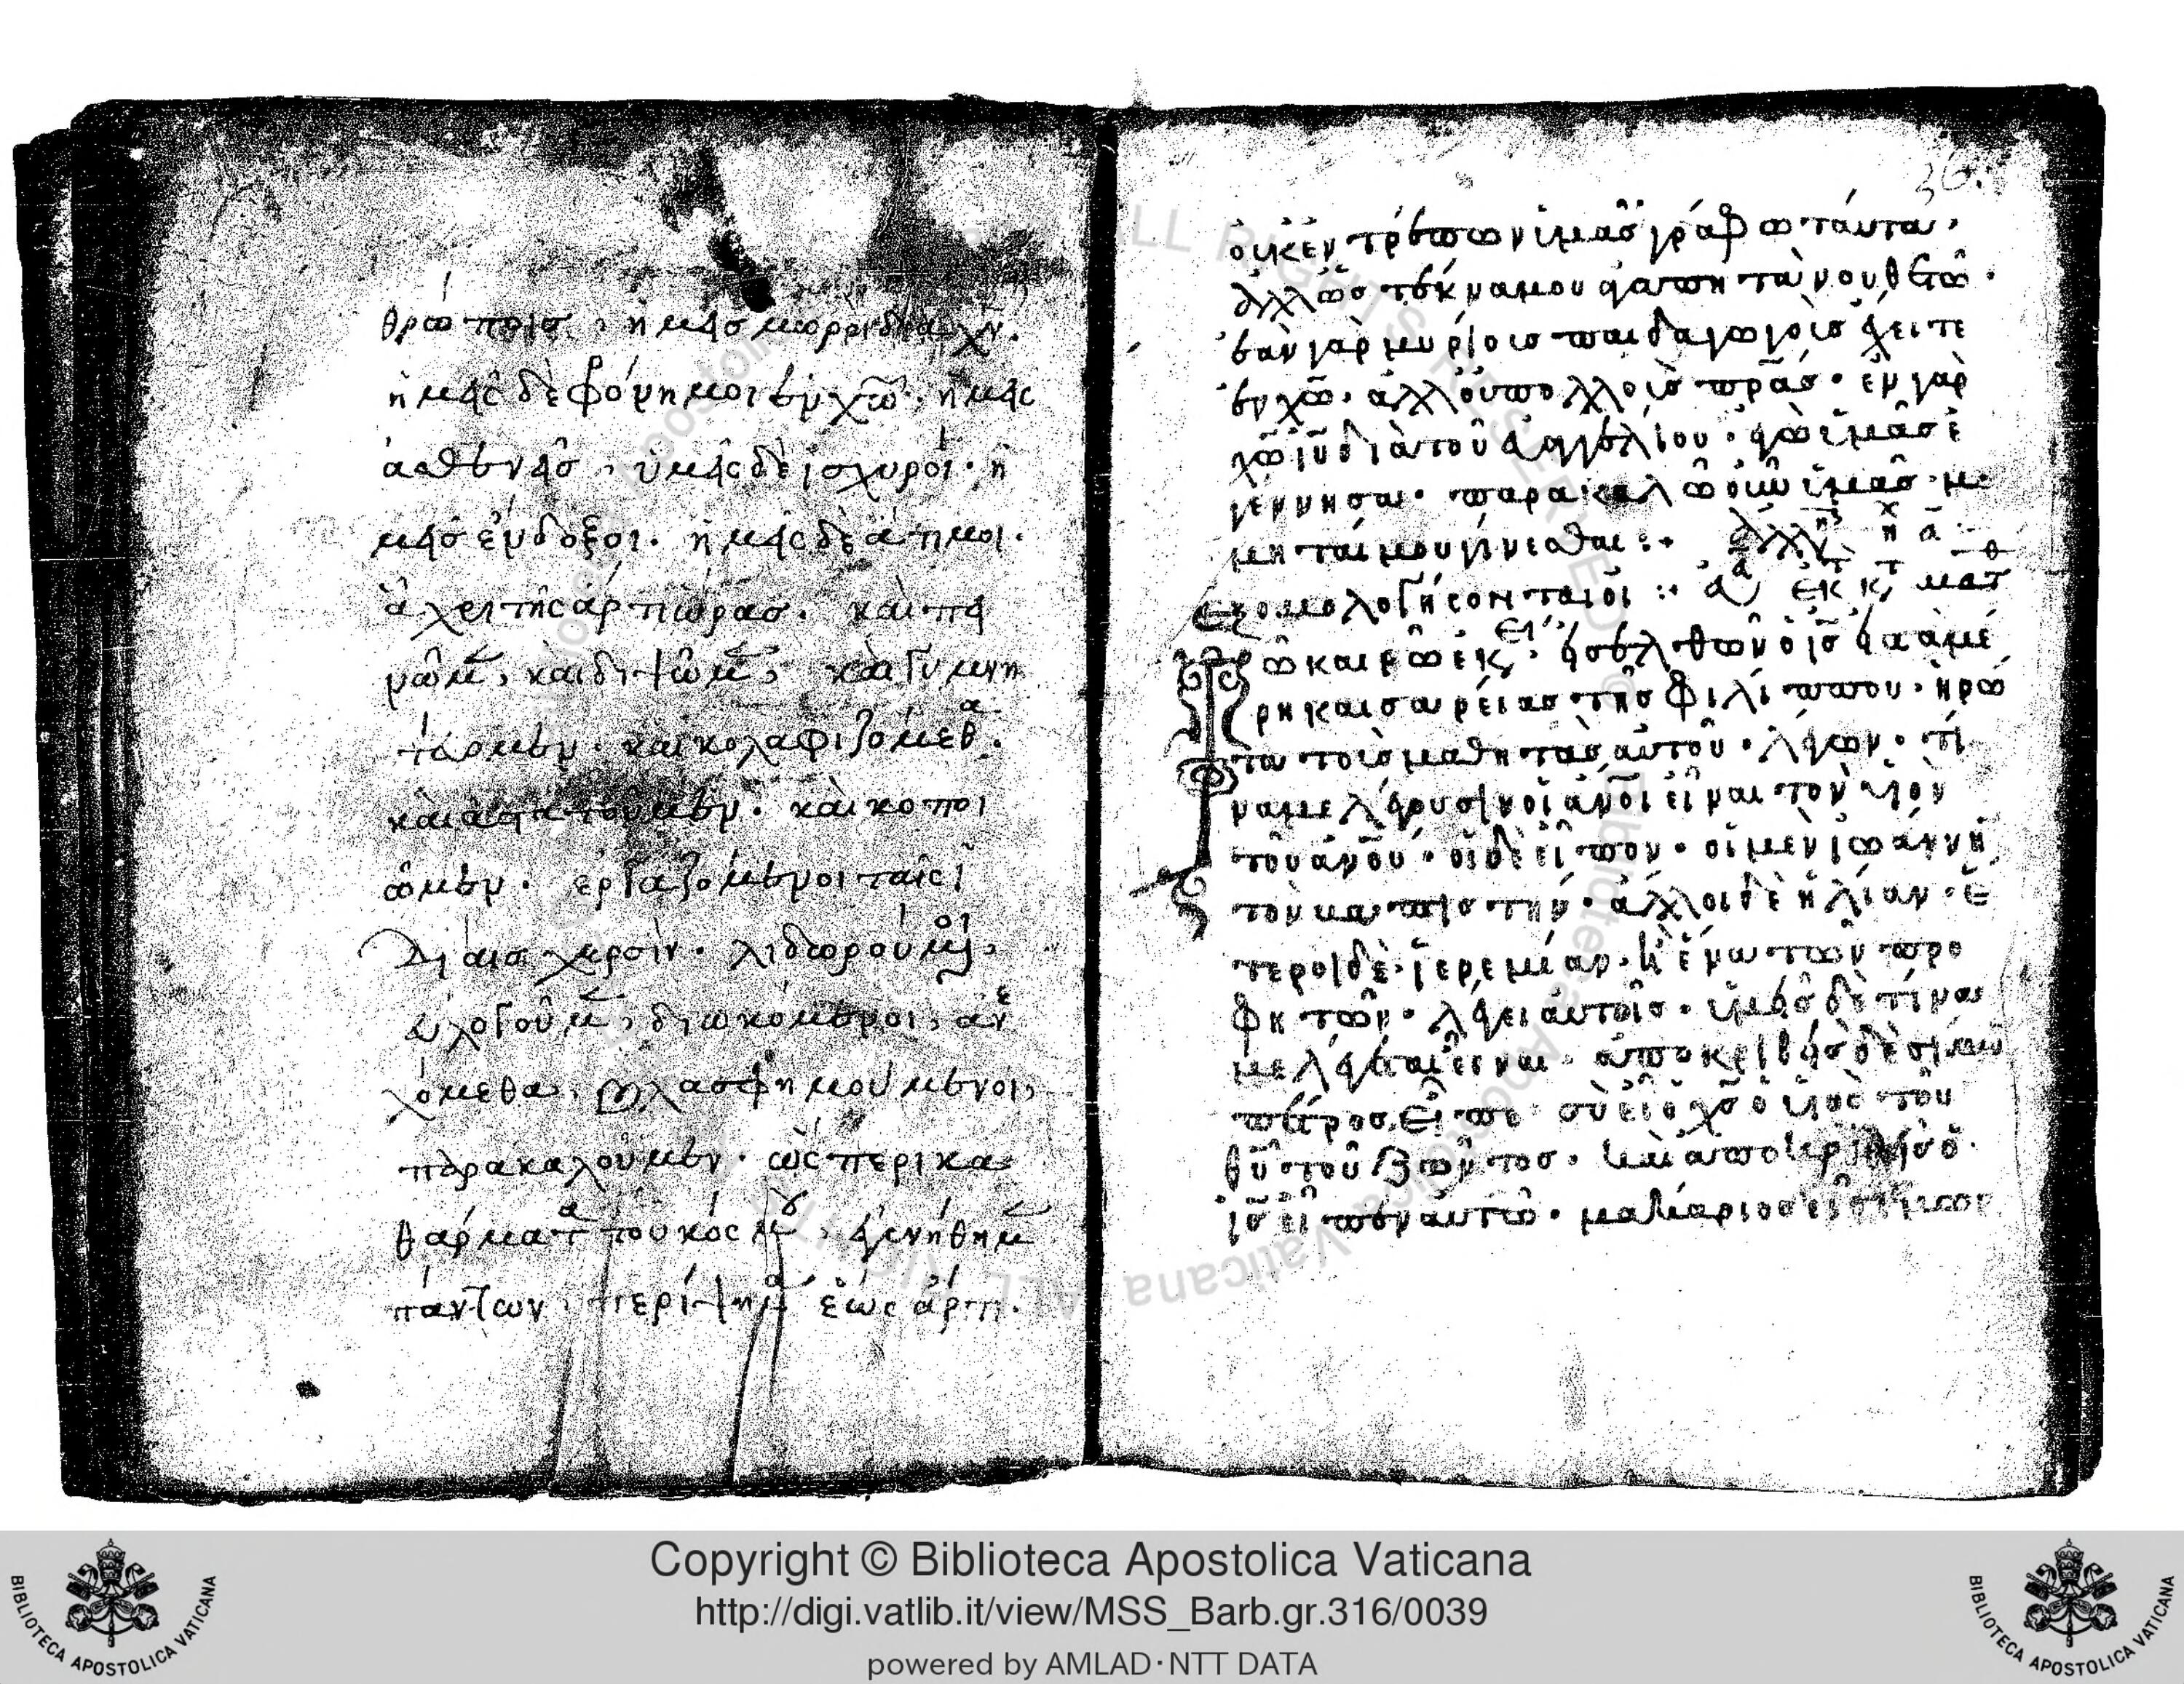 θρώποις, ἡμεῖς μωροὶ διὰ χν.
ἡμεῖς δὲ φρόνημοι ἐν χω. ἡμεῖς
ἀσθενεῖς, ὑμεῖς δὲ ἰσχυροί. ἡ
μεῖς ἔνδοξοι. ἡμεῖς δὲ ἄτημοι.
ἄχρι τῆς ἄρτι ὥρας. καὶ πει
νῶμ, καὶ διψῶμ, καὶ γυμνη
τεύομεν. καὶ κολαφιζόμεθα.
καὶ ἀστατοῦμεν. καὶ κοπι
ῶμεν. ἐργαζόμενοι ταῖς ἰ
δίαις χερσίν. λιδωρούμοι,
εὐλογοῦμ, διωκόμενοι, ἀνε
χόμεθα, βλασφημούμενοι,
παρακαλοῦμεν. ὡς περικα
θάρματα τοῦ κόσμου, ἐγενήθημ
πάντων περίψημα ἕως ἄρτι.
36.
οὐκ ἐντρέπων ἱμᾶς γράφω ταύτα,
ἀλλ' ὡς τέκνα μου ἀγαπητὰ νουθετῶ.
ἐὰν γὰρ μυρίοις παιδαγωγοὺς ἔχειτε
ἐν χω. ἀλλ' οὐ πολλοὺς πρας. ἐν γὰρ
χω ιυ διὰ τοῦ εὐαγγελίου. ἐγὼ ἱμᾶς ἐ
γέννησα. παρακαλῶ οὖν ἱμᾶς. μι
μηταί μου γίνεσθαι :+
Ἐξομολογήσονται οἱ :+ ἐκ κτ ματθ
Τῶ καιρῶ ἐκ. εἰσελθὼν ὁ ις εἰς τὰ μέ
ρη καισαρείας τῆς φιλίππου. ἠρώ
τα τοὺς μαθητὰς αὐτοῦ. λέγων. τί
να με λέγουσιν οἱ ανοι εἶναι τὸν υἱὸν
τοῦ ανου. οἱ δὲ εἶπον. οἱ μὲν ἰωάννη
τὸν βαπτιστήν. ἄλλοι δὲ ἠλίαν. ἕ
τεροι δὲ ἰερεμίαν. ἢ ἕνα τῶν προ
φητῶν. λέγει αὐτοῖς. ἱμεῖς δὲ τίνα
με λέγεται εἶναι. ἀποκριθεὶς δὲ σίμων
πέτρος εἶπε. σὺ εἶ ὁ χς ὁ υἱὸς τοῦ
θυ τοῦ ζῶντος. καὶ ἀποκριθεὶς ὁ
ις εἶπεν αὐτῶ. μακάριος εἶ σίμων
Copyright © Biblioteca Apostolica Vaticana
http://digi.vatlib.it/view/MSS_Barb.gr.316/0039
powered by AMLAD·NTT DATA
BIBLIOTECA APOSTOLICA VATICANA
BIBLIOTECA APOSTOLICA VATICANA